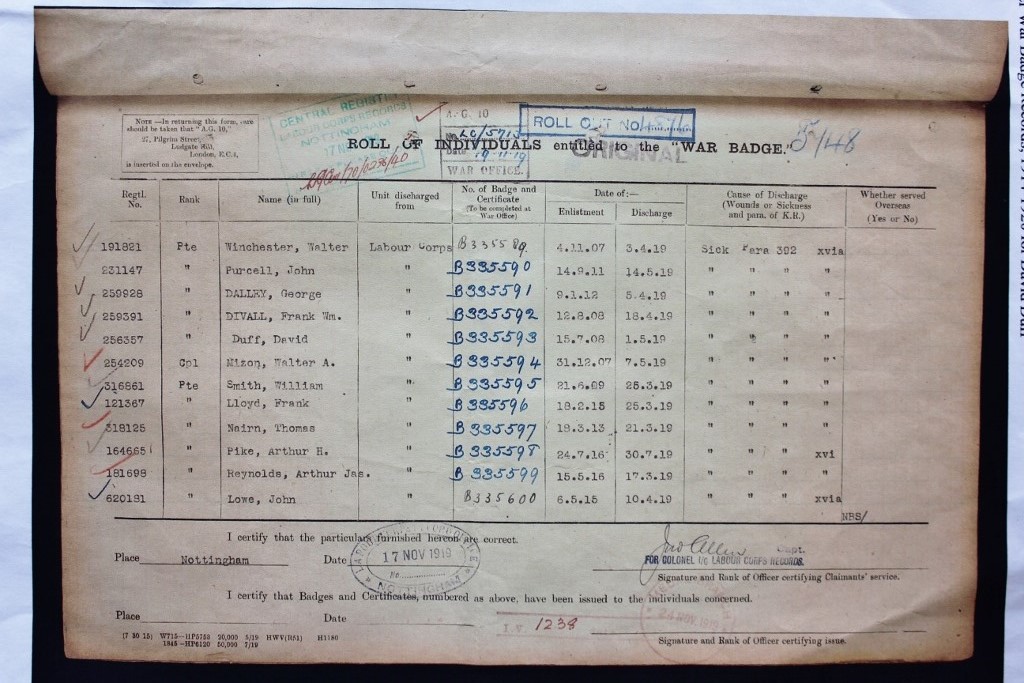 NOTE —In returning this form, care
should be taken that "A.G. 10,"
27, Pilgrim Street,
Ludgate Hill,
London, E.C.4,
is inserted on the envelope.
CENTRAL REGISTRY
LABOUR CORPS RECORDS
NOTTINGHAM
17 NOV
A.G. 10
No. LC/5713
Date 19-11-19
WAR OFFICE.
ROLL OUT No.
ORIGINAL
5/148
ROLL OF INDIVIDUALS entitled to the "WAR BADGE."
Regtl. No. Rank Name (in full) Unit discharged from No. of Badge and Certificate (To be completed at War Office) Date of:— Enlistment Discharge Cause of Discharge (Wounds or Sickness and para. of K.R.) Whether served Overseas (Yes or No)
191821 Pte Winchester, Walter Labour Corps B335589. 4.11.07 3.4.19 Sick Para 392 xvia
231147 " Purcell, John " B335590 14.9.11 14.5.19 " " " "
259928 " DALLEY, George " B335591 9.1.12 5.4.19 " " " "
259391 " DIVALL, Frank Wm. " B335592 12.8.08 18.4.19 " " " "
256357 " Duff, David " B335593 15.7.08 1.5.19 " " " "
254209 Cpl Mizon, Walter A. " B335594 31.12.07 7.5.19 " " " "
316861 Pte Smith, William " B335595 21.6.99 25.3.19 " " " "
121367 " Lloyd, Frank " B335596 18.2.15 25.3.19 " " " "
318125 " Nairn, Thomas " B335597 18.3.13 21.3.19 " " " "
164665 " Pike, Arthur H. " B335598 24.7.16 30.7.19 " " " xvi
181698 " Reynolds, Arthur Jas. " B335599 15.5.16 17.3.19 " " " "
620181 " Lowe, John " B335600 6.5.15 10.4.19 " " " xvia
NBS/
I certify that the particulars furnished hereon are correct.
Place Nottingham Date 17 NOV 1919
NOTTINGHAM
Capt.
FOR COLONEL I/c LABOUR CORPS RECORDS.
Signature and Rank of Officer certifying Claimants' service.
I certify that Badges and Certificates, numbered as above, have been issued to the individuals concerned.
Place Date
I.V. 1238
24 NOV 1919
Signature and Rank of Officer certifying issue.
[7 30 15] W715—HP5753 20,000 5/19 HWV(R51) H1180
1845—HP6120 50,000 7/19